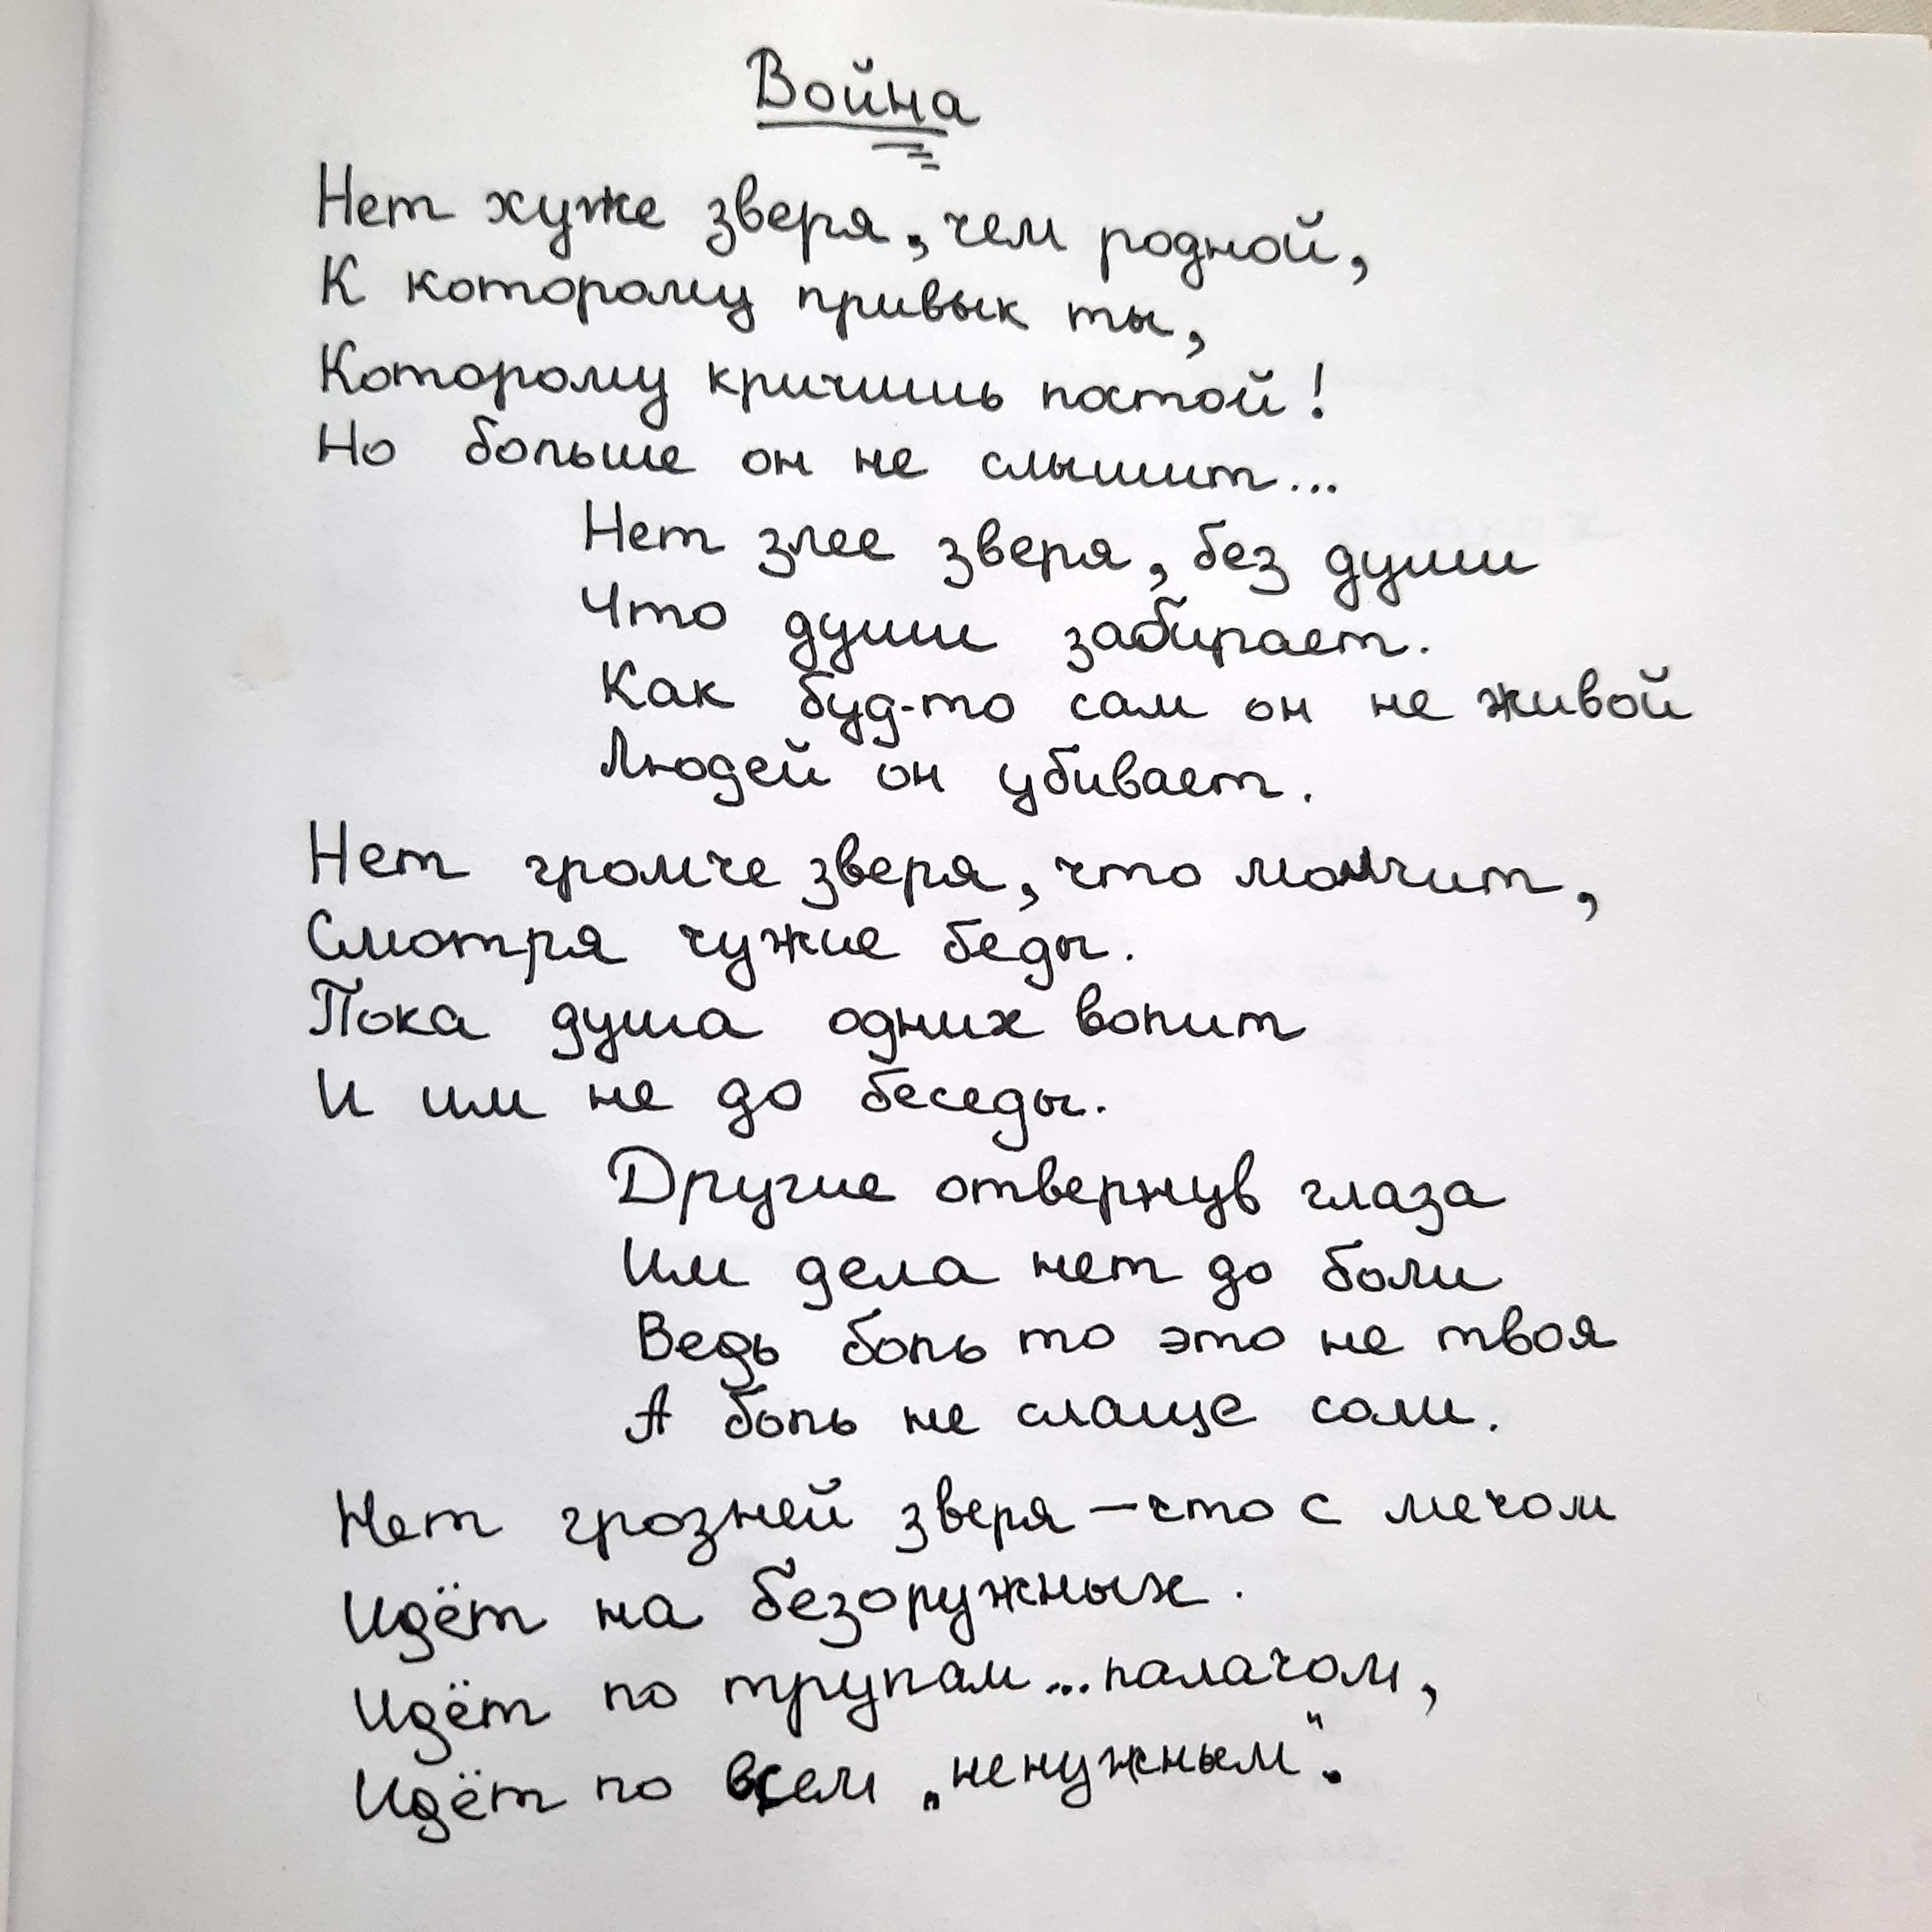 Война
Нет хуже зверя, чем родной,
К которому привык ты,
Которому кричишь постой!
Но больше он не слышит...
Нет злее зверя, без души
Что души забирает.
Как буд-то сам он не живой
Людей он убивает.
Нет громче зверя, что молчит,
Смотря чужие беды.
Пока душа одних вопит
И им не до беседы.
Другие отвернув глаза
Им дела нет до боли
Ведь боль то это не твоя
А боль не слаще соли.
Нет грозней зверя – что с мечом
Идёт на безоружных.
Идёт по трупам... палачом,
Идёт по всем „ненужным".